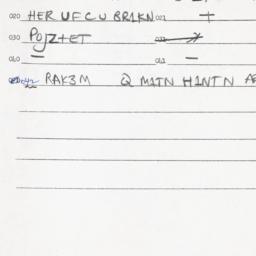 020 HER UFCU BR1KN 021 +
030 POJZ+ET
040 — 041 —
RAK3M Q M1TN H1NTN